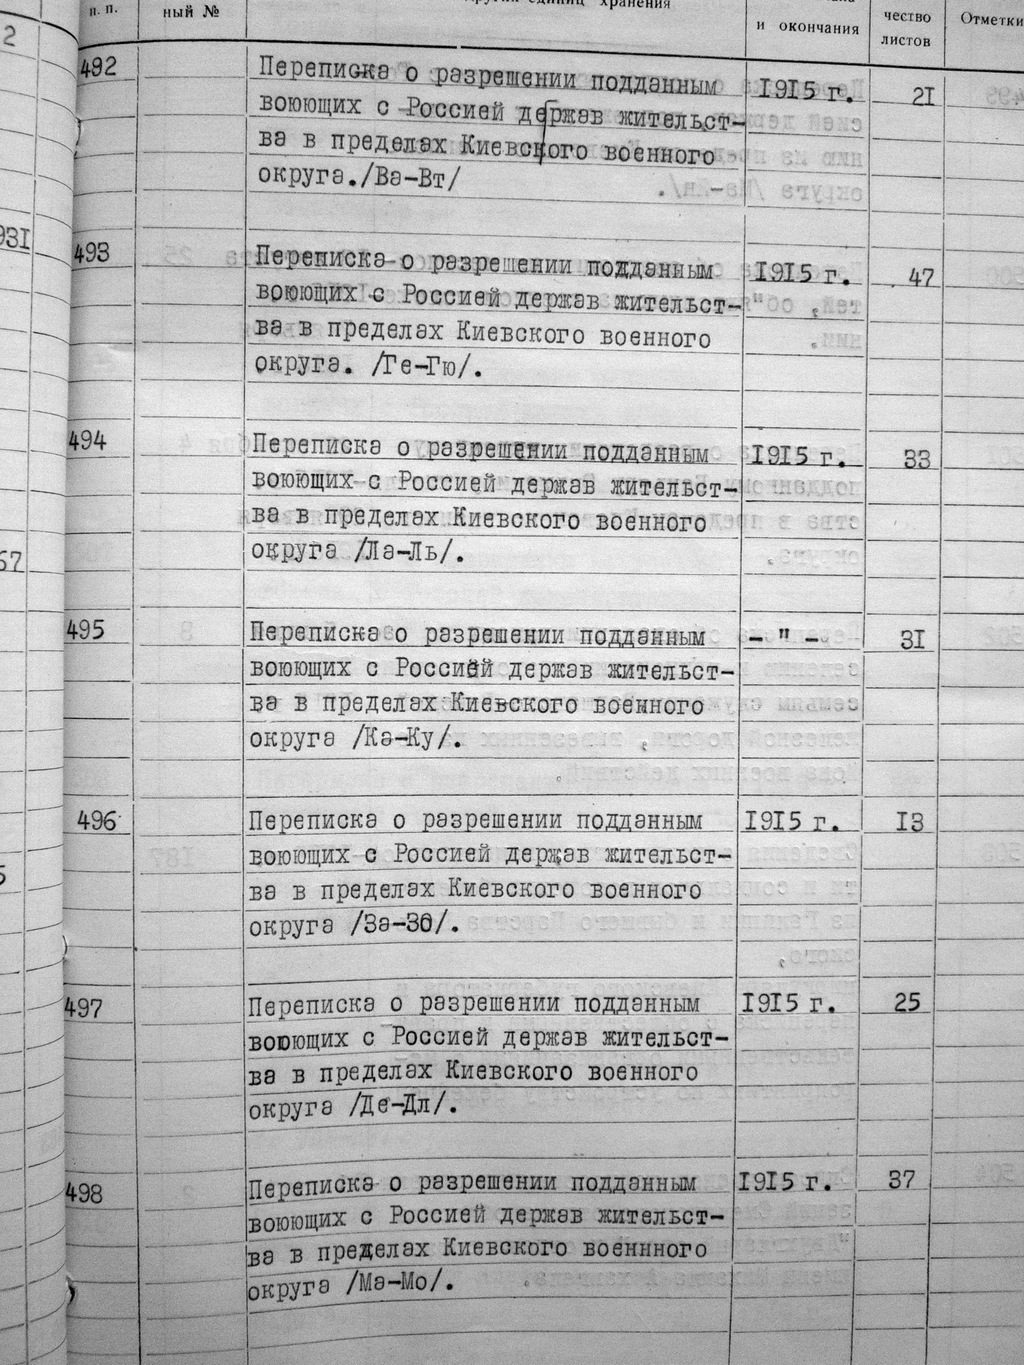 п. п.
ный №
единиц хранения
и окончания
чество
листов
Отметки
2
931
67
5
492
Переписка о разрешении подданным 1915 г. 21
воюющих с Россией держав жительст-
ва в пределах Киевского военного
округа./Ва-Вт/
493
Переписка о разрешении подданным 1915 г. 47
воюющих с Россией держав жительст-
ва в пределах Киевского военного
округа. /Ге-Гю/.
494
Переписка о разрешении подданным 1915 г. 33
воюющих с Россией держав жительст-
ва в пределах Киевского военного
округа /Ла-Ль/.
495
Переписка о разрешении подданным - " - 31
воюющих с Россией держав жительст-
ва в пределах Киевского военного
округа /Ка-Ку/.
496
Переписка о разрешении подданным 1915 г. 13
воюющих с Россией держав жительст-
ва в пределах Киевского военного
округа /За-Зб/.
497
Переписка о разрешении подданным 1915 г. 25
воюющих с Россией держав жительст-
ва в пределах Киевского военного
округа /Де-Дл/.
498
Переписка о разрешении подданным 1915 г. 37
воюющих с Россией держав жительст-
ва в пределах Киевского военнного
округа /Ма-Мо/.